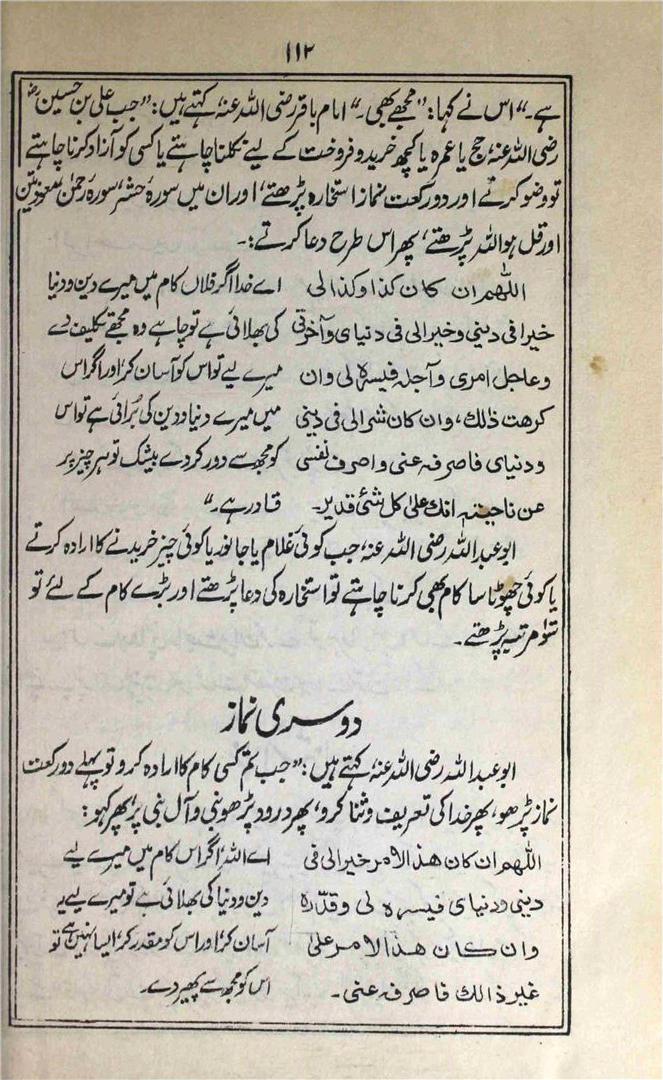 ۱۱۲
ہے۔" اس نے کہا: "مجھے بھی۔" امام باقر رضی اللہ عنہ، کہتے ہیں: "جب علی بن حسین رض
رضی اللہ عنہ، حج یا عمرہ یا کچھ خرید و فروخت کے لیے نکلنا چاہتے یا کسی کو آزاد کرنا چاہتے
تو وضو کرتے اور دو رکعت نماز استخارہ پڑھتے، اور ان میں سورۂ حشر، سورۂ رحمٰن، معوذتین
اور قل ہو اللہ پڑھتے، پھر اس طرح دعا کرتے:۔
اللھم ان کان کذا وکذا لی
خیرا فی دینی وخیرا لی فی دنیای وآخرتی
وعاجل امری وآجلہ فیسرہ لی وان
کرھت ذلک، وان کان شرا لی فی دینی
ودنیای فاصرفہ عنی واصرف نفسی
عن ناحیتہ انک علیٰ کل شئی قدیر۔
اے خدا اگر فلاں کام میں میرے دین و دنیا
کی بھلائی ہے تو چاہے وہ مجھے تکلیف دے
میرے لیے تو اس کو آسان کر، اور اگر اس
میں میرے دنیا و دین کی بُرائی ہے تو اس
کو مجھ سے دور کردے بیشک تو ہر چیز پر
قادر ہے۔"
ابوعبداللہ رضی اللہ عنہ، جب کوئی غلام یا جانور یا کوئی چیز خریدنے کا ارادہ کرتے
یا کوئی چھوٹا سا کام بھی کرنا چاہتے تو استخارہ کی دعا پڑھتے اور بڑے کام کے لئے تو
سَو مرتبہ پڑھتے۔
دوسری نماز
ابوعبداللہ رضی اللہ عنہ، کہتے ہیں: "جب تم کسی کام کا ارادہ کرو تو پہلے دو رکعت
نماز پڑھو، پھر خدا کی تعریف و ثنا کرو، پھر درود پڑھو نبی و آل نبی پر، پھر کہو:
اللھم ان کان ھذا الامر خیرا لی فی
دینی ودنیای فیسرہ لی وقدّرہ
وان کان ھذا الامر علیٰ
غیر ذالک فاصرفہ عنی۔
اے اللہ اگر اس کام میں میرے لیے
دین و دنیا کی بھلائی ہے تو میرے لیے یہ
آسان کر، اور اس کو مقدر کر، ایسا نہیں ہے تو
اس کو مجھ سے پھیر دے۔